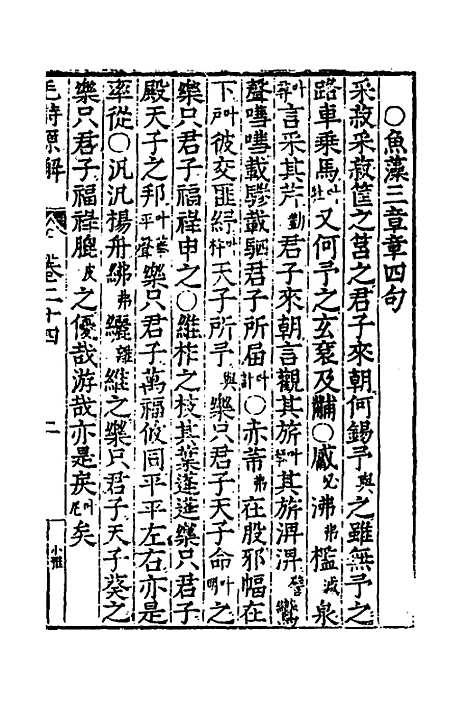 ○魚藻三章章四句
采菽采菽筐之筥之君子來朝何錫予與之雖無予之
路車乘馬叶牡又何予之玄袞及黼○觱必沸弗檻泉
言采其芹勤君子來朝言觀其旂叶其旂淠淠譬鸞
聲嘒嘒載驂載駟君子所屆叶計○赤芾弗在股邪幅在
下叶彼交匪紓叶天子所予與樂只君子天子命叶明之
樂只君子福祿申之○維柞之枝其葉蓬蓬樂只君子
殿天子之邦叶平聲樂只君子萬福攸同平平左右亦是
率從○汎汎楊舟紼弗纚離維之樂只君子天子葵之
樂只君子福祿膍皮之優哉游哉亦是戾叶矣
毛詩原解 卷二十四 二 小雅